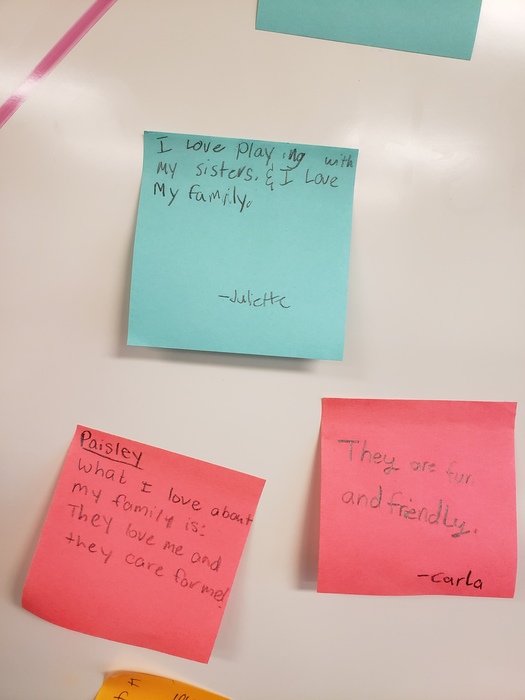 I Love playing with
my sisters. & I Love
My family.
-Juliette
Paisley
What I love about
my family is:
They love me and
they care for me!
They are fun
and friendly.
-Carla